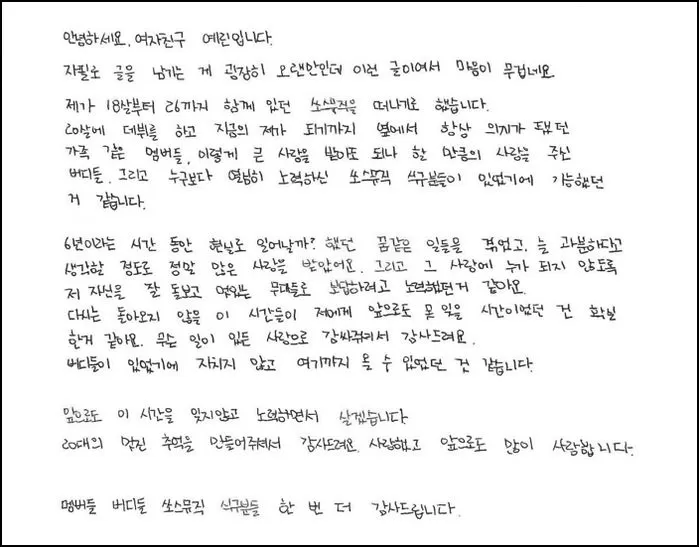 안녕하세요, 여자친구 예린입니다.
자필로 글을 남기는 게 굉장히 오랜만인데 이런 글이여서 마음이 무겁네요.
제가 18살부터 26까지 함께 있던 쏘스뮤직을 떠나기로 했습니다.
20살에 데뷔를 하고 지금의 제가 되기까지 옆에서 항상 의지가 돼줬던
가족 같은 멤버들, 이렇게 큰 사랑을 받아도 되나 할 만큼의 사랑을 주신
버디들. 그리고 누구보다 열심히 노력하신 쏘스뮤직 식구분들이 있었기에 가능했던
거 같습니다.
6년이라는 시간 동안 현실로 일어날까? 했던 꿈같은 일들을 겪었고, 늘 과분하다고
생각할 정도로 정말 많은 사랑을 받았어요. 그리고 그 사랑에 누가 되지 않도록
저 자신을 잘 돌보고 멋있는 무대들로 보답하려고 노력했던거 같아요.
다시는 돌아오지 않을 이 시간들이 저에게 앞으로도 못 잊을 시간이었던 건 확실
한거 같아요. 무슨 일이 있든 사랑으로 감싸줘서 감사드려요.
버디들이 있었기에 지치지 않고 여기까지 올 수 있었던 것 같습니다.
앞으로도 이 시간을 잊지않고 노력하면서 살겠습니다
20대의 멋진 추억을 만들어주셔서 감사드려요. 사랑했고 앞으로도 많이 사랑합니다.
멤버들 버디들 쏘스뮤직 식구분들 한 번 더 감사드립니다.